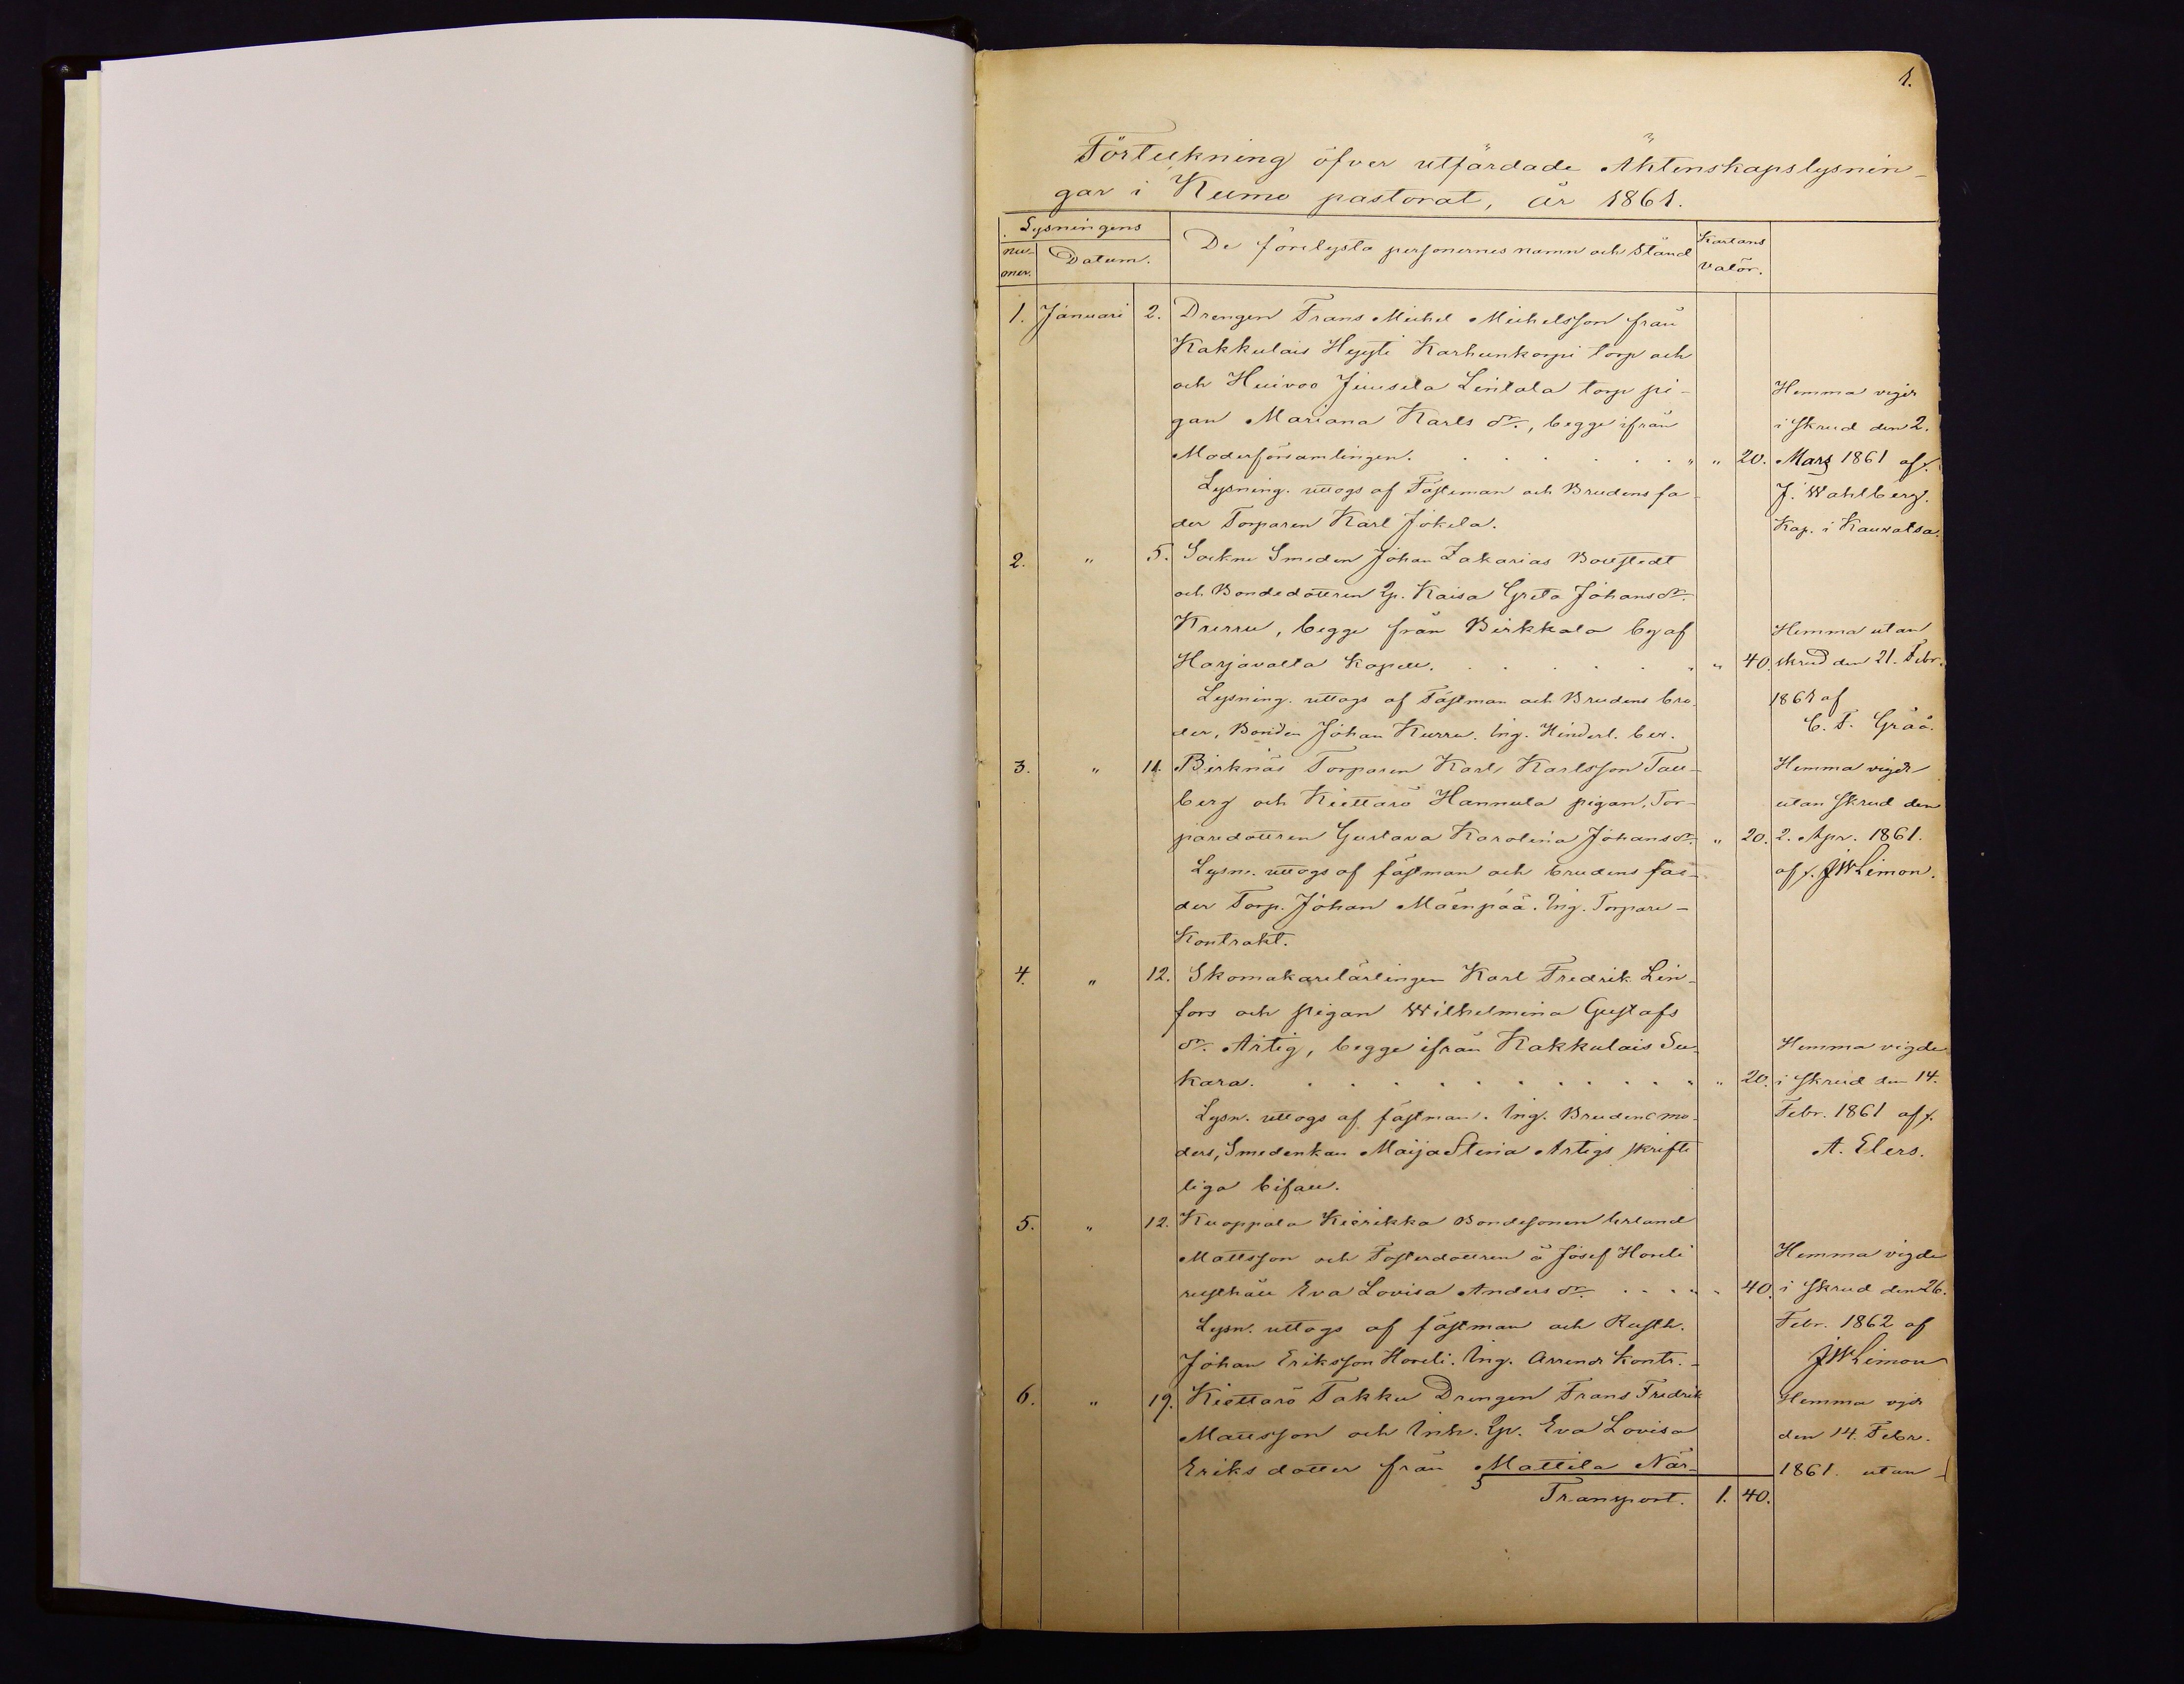 1.
Förteckning öfver utfärdade Äktenskapslysnin-
gar i Kumo pastorat, år 1861.
Lysningens
nu-
mer.
Datum.
De förelysta personernes namn och stånd
Kartans
valör.
1. Januari 2. Drengen Frans Michel Michelsson från
Kakkulais Hyyti Karhunkorpi torp och
och Huivoo Juusela Lintala torp pi-
gan Mariana Karls dr., begge ifrån
Moderförsamlingen. " " 20.
Lysning. uttogs af Fästeman och Brudens fa-
der Torparen Karl Jokela.
Hemma vigde
i skrud den 2.
Mars 1861 af
J. Wahlberg.
Kap. i Kauvatsa.
2. " 5. Sockne Smeden Johan Zakarias Boustedt
och Bondedottren Kaisa Greta Johans dr.
Kurru, begge från Pirkkala by af
Harjavalta Kapell. " " 40.
Lysning. uttogs af Fästman och Brudens bro-
der, Bonden Johan Kurru. Ing. Hinderl. bev.
Hemma utan
skrud den 21. Febr.
1861 af
C. F. Gråå.
3. " 11. Birknäs Torparen Karl Karlsson Tall-
berg och Kiettarö Hannula pigan, Tor-
paredottren Gustava Karolina Johans dr. " 20.
Lysn. uttogs af fästman och brudens fa-
der Torp. Johan Mäenpää. Ing. Torpare-
Kontrakt.
Hemma vigde
utan skrud den
2. Apr. 1861.
af JWLimon.
4. " 12. Skomakarelärlingen Karl Fredrik Lin-
fors och pigan Wilhelmina Gustafs
dr. Artig, begge ifrån Kakkulais Su-
kara. " " 20.
Lysn. uttogs af fästman. Ing. Brudens mo-
ders, Smedenkan Maija Stina Artigs skrifte
liga bifall.
Hemma vigde
i skrud den 14.
Febr. 1861 af
A. Elers.
5. " 12. Kuoppala Kiérikka Bondesonen Erland
Mattsson och Fosterdottren å Josef Honli
rusthåll Eva Lovisa Anders dr. " " 40.
Lysn. uttogs af fästman och Rusth.
Johan Eriksson Honli. Ing. Arrende Kontr.
Hemma vigde
i skrud den 26.
Febr. 1862 af
JWLimon
6. " 19. Kiettarö Takku Drengen Frans Fredrik
Mattsson och Inh. Eva Lovisa
Eriks dotter från Mattila När-
Hemma vigde
den 14. Febr.
1861. utan
Transport. 1. 40.